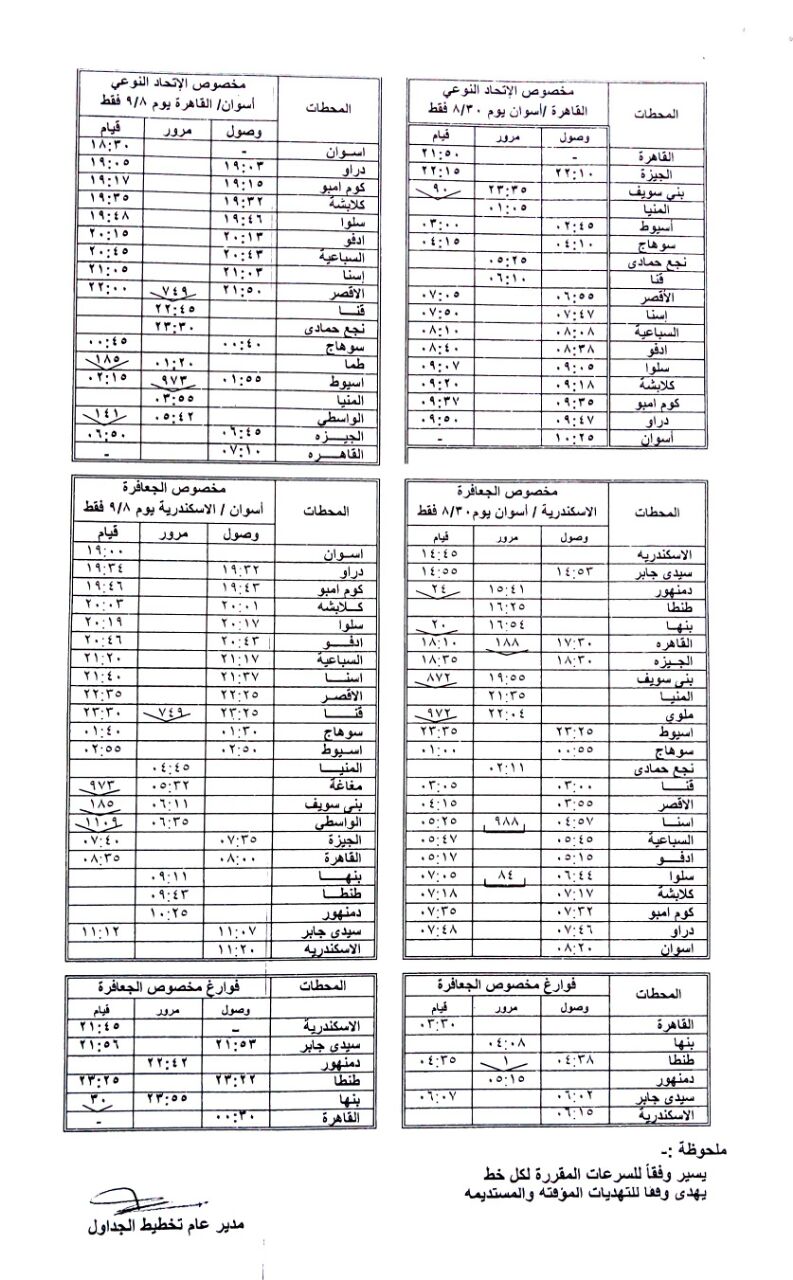 مخصوص الإتحاد النوعي
القاهرة /أسوان يوم ٨/٣٠ فقط
المحطات
وصول مرور قيام
القاهرة - ٢١:٥٠
الجيزة ٢٢:١٠ ٢٢:١٥
بني سويف ٢٣:٣٥ ٩٠
المنيا ٠١:٠٥
أسيوط ٠٢:٤٥ ٠٣:٠٠
سوهاج ٠٤:١٠ ٠٤:١٥
نجع حمادى ٠٥:٢٥
قنا ٠٦:١٠
الأقصر ٠٦:٥٥ ٠٧:٠٥
إسنا ٠٧:٤٧ ٠٧:٥٠
السباعية ٠٨:٠٨ ٠٨:١٠
ادفو ٠٨:٣٨ ٠٨:٤٠
سلوا ٠٩:٠٥ ٠٩:٠٧
كلابشة ٠٩:١٨ ٠٩:٢٠
كوم امبو ٠٩:٣٥ ٠٩:٣٧
دراو ٠٩:٤٧ ٠٩:٥٠
أسوان ١٠:٢٥ -
مخصوص الإتحاد النوعي
أسوان/ القاهرة يوم ٩/٨ فقط
المحطات
وصول مرور قيام
اسوان - ١٨:٣٠
دراو ١٩:٠٣ ١٩:٠٥
كوم امبو ١٩:١٥ ١٩:١٧
كلابشة ١٩:٣٢ ١٩:٣٥
سلوا ١٩:٤٦ ١٩:٤٨
ادفو ٢٠:١٣ ٢٠:١٥
السباعية ٢٠:٤٣ ٢٠:٤٥
إسنا ٢١:٠٣ ٢١:٠٥
الأقصر ٢١:٥٠ ٧٤٩ ٢٢:٠٠
قنا ٢٢:٤٥
نجع حمادى ٢٣:٣٠
سوهاج ٠٠:٤٠ ٠٠:٤٥
طما ٠١:٢٠ ١٨٥
اسيوط ٠١:٥٥ ٩٧٣ ٠٢:١٥
المنيا ٠٣:٥٥
الواسطي ٠٥:٤٢ ١٤١
الجيزه ٠٦:٤٥ ٠٦:٥٠
القاهره ٠٧:١٠ -
مخصوص الجعافرة
الاسكندرية / أسوان يوم ٨/٣٠ فقط
المحطات
وصول مرور قيام
الاسكندريه ١٤:٤٥
سيدى جابر ١٤:٥٣ ١٤:٥٥
دمنهور ١٥:٤١ ٢٤
طنطا ١٦:٢٥
بنها ١٦:٥٤ ٢٠
القاهره ١٧:٣٠ ١٨٨ ١٨:١٠
الجيزه ١٨:٣٠ ١٨:٣٥
بنى سويف ١٩:٥٥ ٨٧٢
المنيا ٢١:٣٥
ملوي ٢٢:٠٤ ٩٧٢
اسيوط ٢٣:٢٥ ٢٣:٣٥
سوهاج ٠٠:٥٥ ٠١:٠٠
نجع حمادى ٠٢:١١
قنا ٠٣:٠٠ ٠٣:٠٥
الاقصر ٠٣:٥٥ ٠٤:١٥
اسنا ٠٤:٥٧ ٩٨٨ ٠٥:٢٥
السباعية ٠٥:٤٥ ٠٥:٤٧
ادفو ٠٥:١٥ ٠٥:١٧
سلوا ٠٦:٤٤ ٨٤ ٠٧:٠٥
كلابشة ٠٧:١٧ ٠٧:١٨
كوم امبو ٠٧:٣٢ ٠٧:٣٥
دراو ٠٧:٤٦ ٠٧:٤٨
اسوان ٠٨:٢٠
مخصوص الجعافرة
أسوان / الاسكندرية يوم ٩/٨ فقط
المحطات
وصول مرور قيام
اسوان ١٩:٠٠
دراو ١٩:٣٢ ١٩:٣٤
كوم امبو ١٩:٤٣ ١٩:٤٦
كلابشه ٢٠:٠١ ٢٠:٠٣
سلوا ٢٠:١٧ ٢٠:١٩
ادفو ٢٠:٤٣ ٢٠:٤٦
السباعية ٢١:١٧ ٢١:٢٠
اسنا ٢١:٣٧ ٢١:٤٠
الاقصر ٢٢:٢٥ ٢٢:٣٥
قنا ٢٣:٢٥ ٧٤٩ ٢٣:٣٠
سوهاج ٠١:٣٠ ٠١:٤٠
اسيوط ٠٢:٥٠ ٠٢:٥٥
المنيا ٠٤:٤٥
مغاغة ٠٥:٣٢ ٩٧٣
بنى سويف ٠٦:١١ ١٨٥
الواسطي ٠٦:٣٥ ١١٠٩
الجيزة ٠٧:٣٥ ٠٧:٤٠
القاهرة ٠٨:٠٠ ٠٨:٣٥
بنها ٠٩:١١
طنطا ٠٩:٤٣
دمنهور ١٠:٢٥
سيدى جابر ١١:٠٧ ١١:١٢
الاسكندريه ١١:٢٠
فوارغ مخصوص الجعافرة
المحطات
وصول مرور قيام
القاهرة ٠٣:٣٠
بنها ٠٤:٠٨
طنطا ٠٤:٣٨ ١ ٠٤:٣٥
دمنهور ٠٥:١٥
سيدى جابر ٠٦:٠٢ ٠٦:٠٧
الاسكندرية ٠٦:١٥
فوارغ مخصوص الجعافرة
المحطات
وصول مرور قيام
الاسكندرية - ٢١:٤٥
سيدى جابر ٢١:٥٣ ٢١:٥٦
دمنهور ٢٢:٤٢
طنطا ٢٣:٢٢ ٢٣:٢٥
بنها ٢٣:٥٥ ٣٠
القاهرة ٠٠:٣٠ -
ملحوظة :-
يسير وفقاً للسرعات المقررة لكل خط
يهدى وفقا للتهديات المؤقته والمستديمه
مدير عام تخطيط الجداول